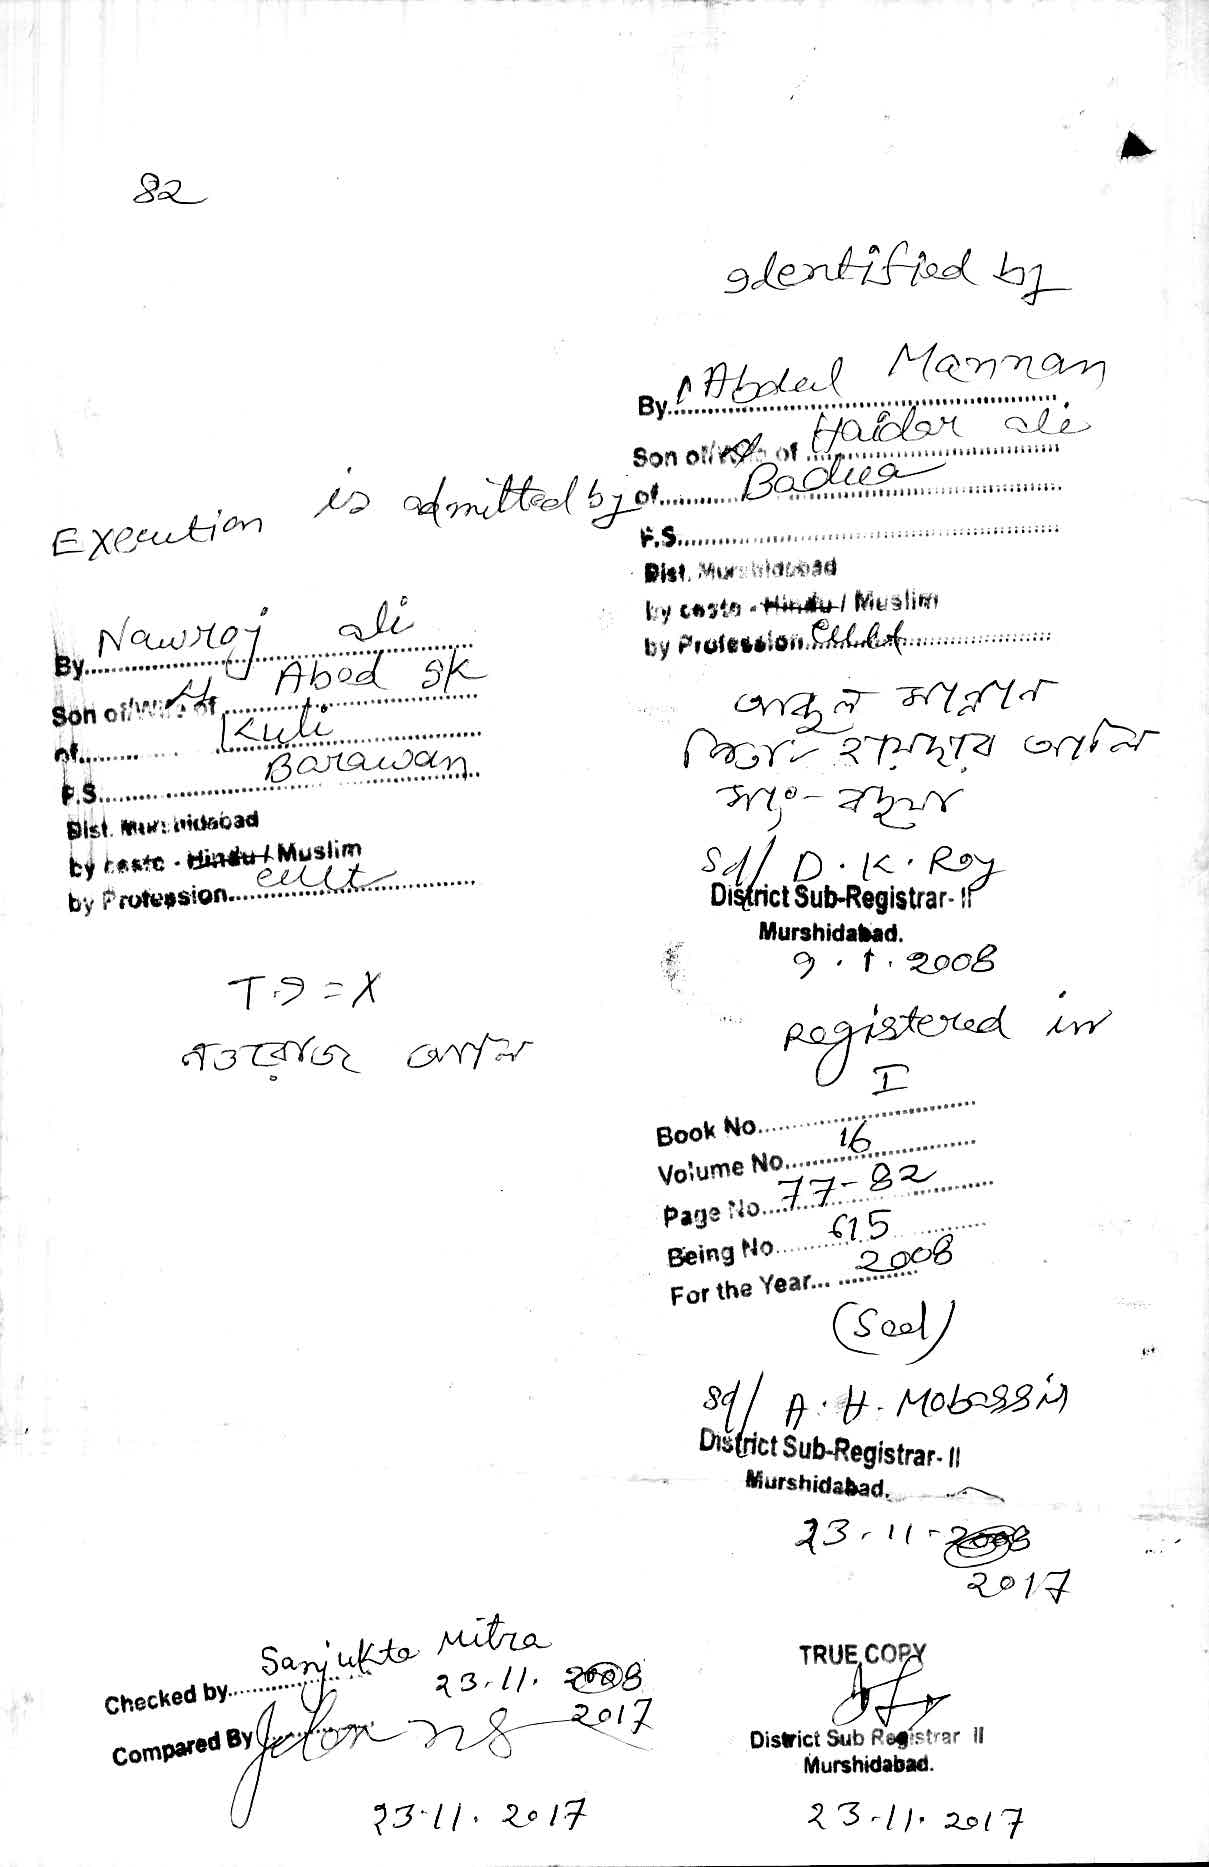 82
Identified by
By Abdul Mannan
Son of/Wife of Haidar ali
of Badua
P.S.
Dist. Murshidabad
by caste - Hindu / Muslim
by Profession Cult
Execution is admitted by
By Nawroj ali
Son of/Wife of Abod Sk
of Kuli
P.S. Barawan
Dist. Murshidabad
by caste - Hindu / Muslim
by Profession cult
আব্দুল মান্নান
পিতা- হায়দার আলি
সাং- বদুয়া
Sd/ D. K. Roy
District Sub-Registrar- II
Murshidabad.
9. 1. 2008
= X
নওরোজ আলি
Registered in
Book No. I
Volume No. 16
Page No. 77-82
Being No. 615
For the Year... 2008
(Seal)
Sd/ A. H. Mobassir
District Sub-Registrar- II
Murshidabad.
23-11-2008
2017
Checked by Sanjukta Mitra
23.11. 2008
2017
Compared By
23.11. 2017
TRUE COPY
District Sub Registrar II
Murshidabad.
23.11. 2017